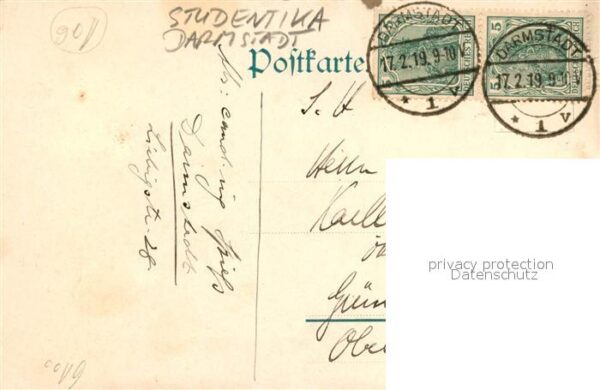 901
STUDENTIKA
DARMSTADT
Postkarte
DARMSTADT
17.2.19. 9-10 V
* 1 v
DARMSTADT
17.2.19. 9-10 V
* 1 v
5
5
Abs: cand. ing.
Darmstadt
Liebigstr. 28.
S. H.
Herrn
Ober
privacy protection
Datenschutz